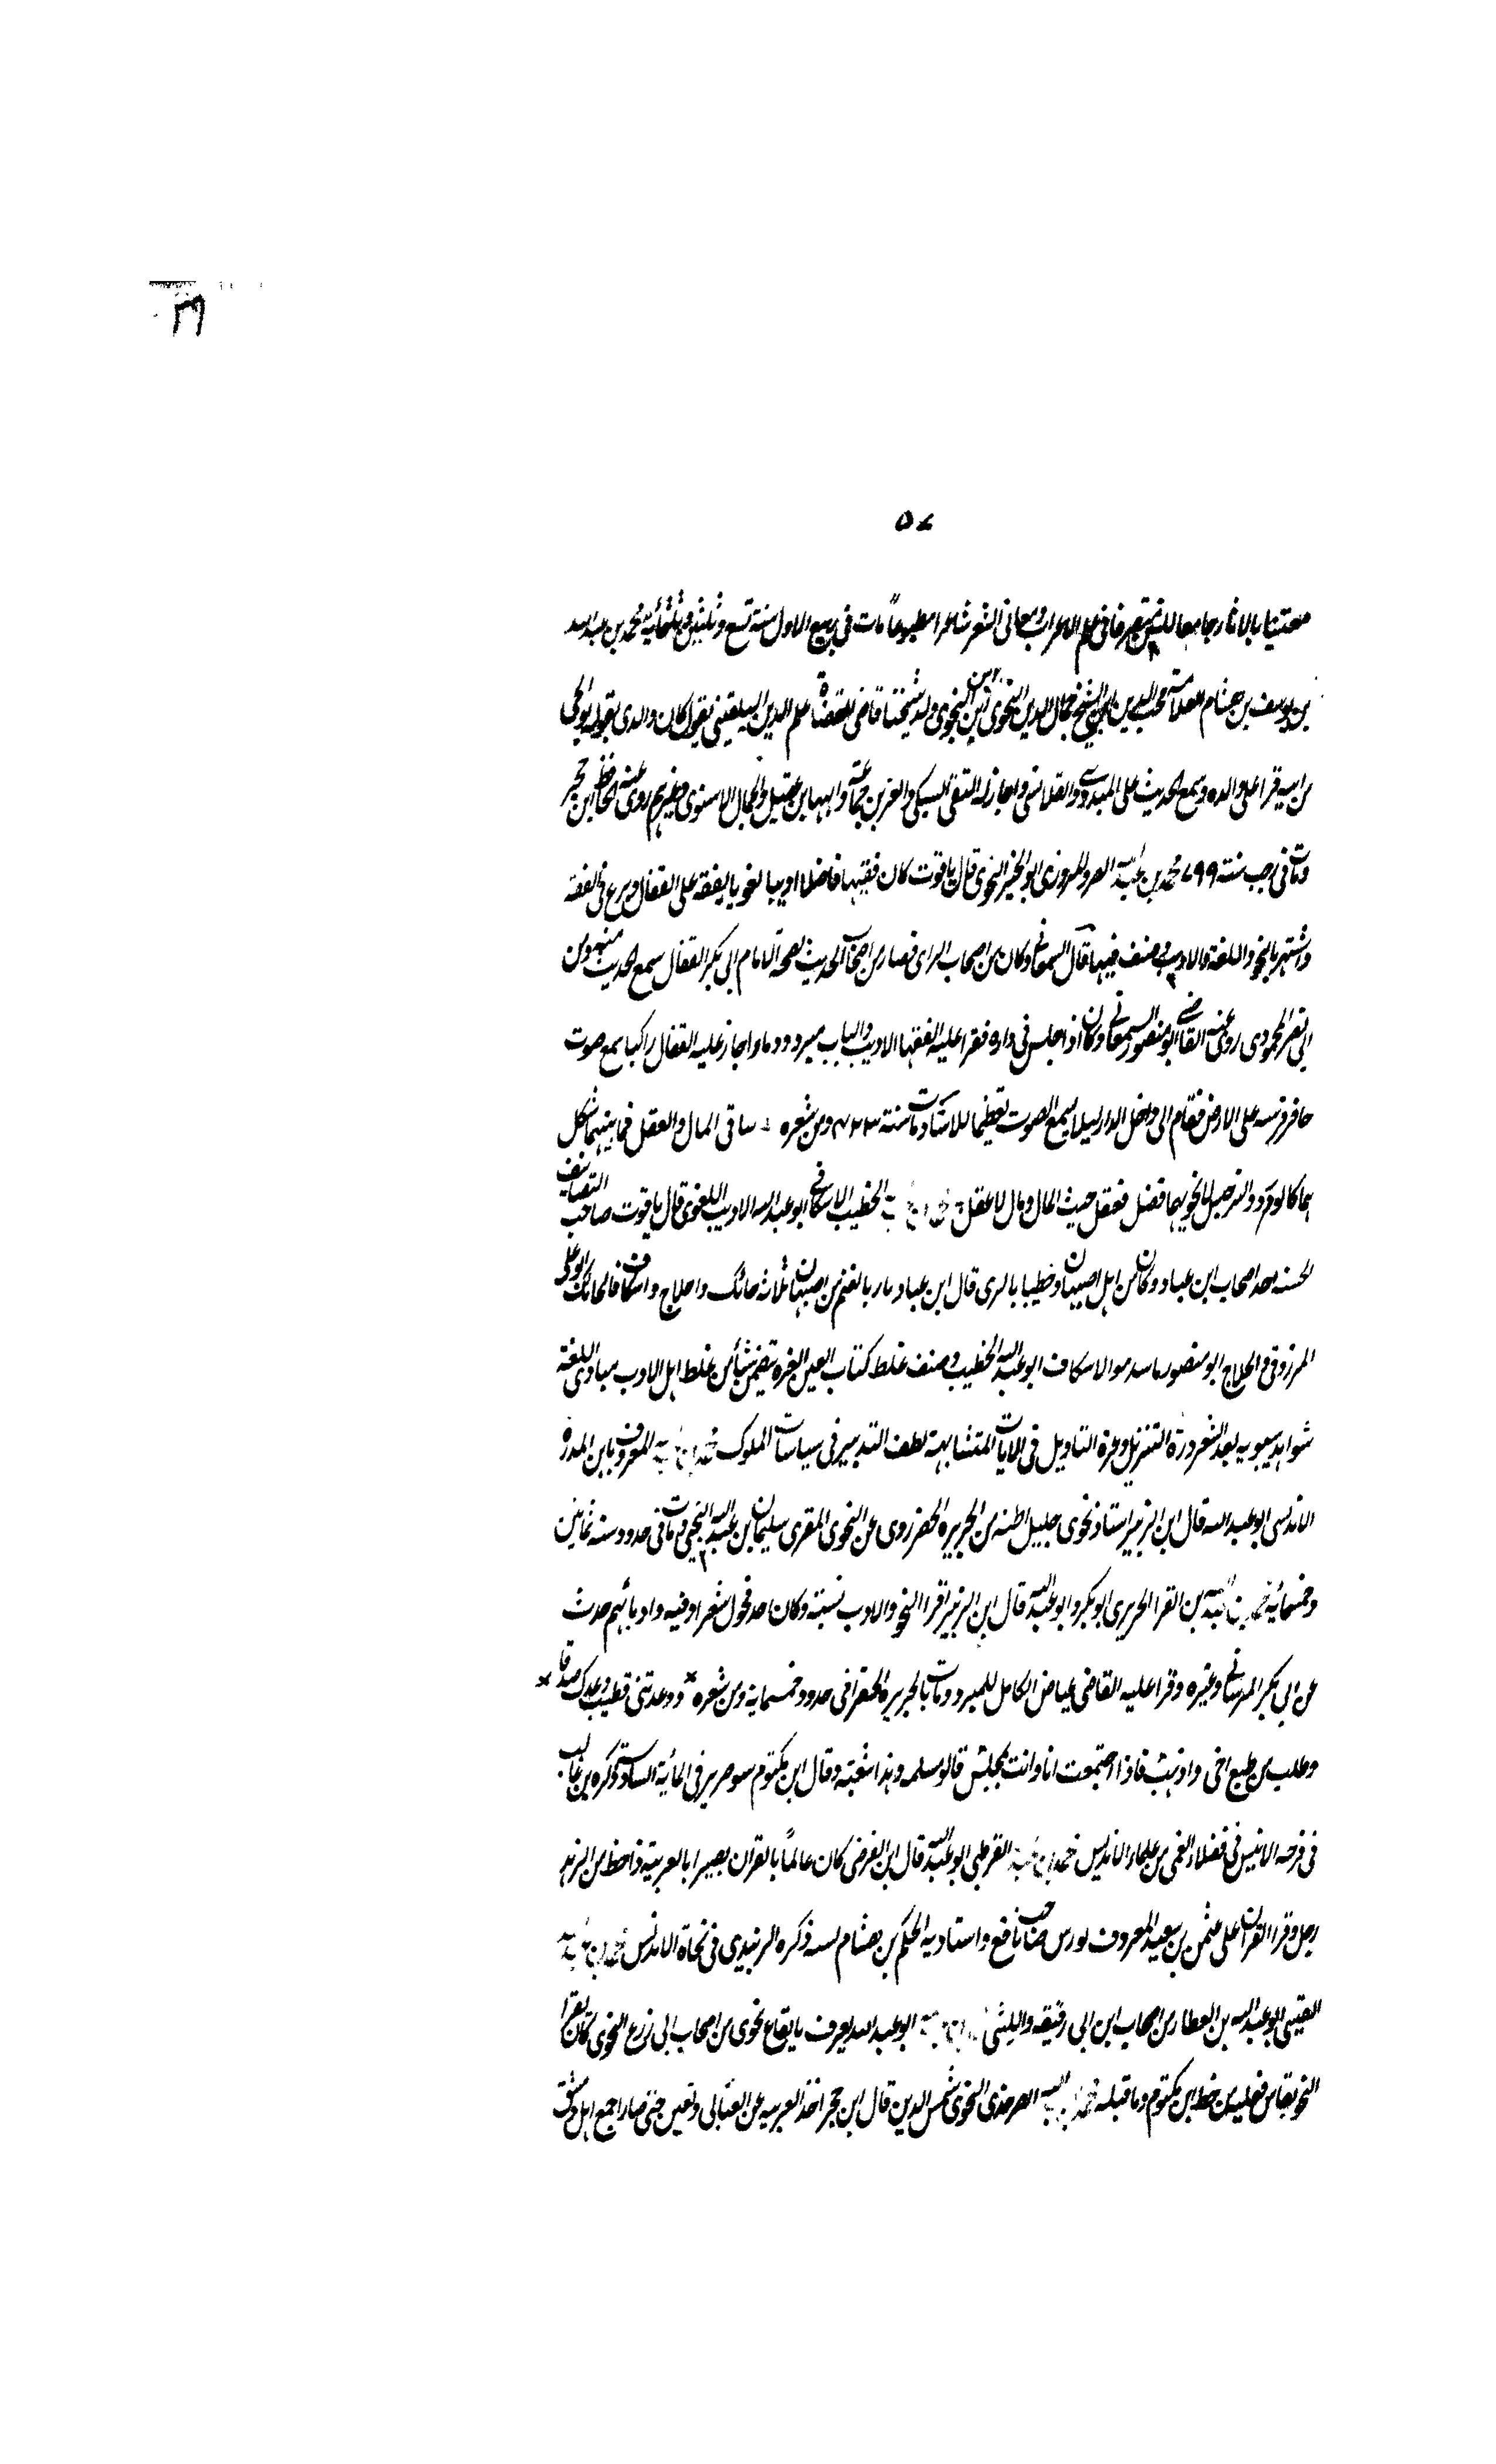 ٥٧
معتنيا بالاثار جامعا للسنن متصرفا فى علم الاعراب ومعانى الشعر شاعرا مطبوعاً مات فى ربيع الاول سنة تسع وثلثين وثلثمائية محمد بن عبد الله
بن يوسف بن هشام العلامة محب الدين ابن الشيخ جمال الدين النحوى ابن النحوى ولد شيخنا قاضى القضاة علم الدين البلقينى يقول كان والدى يقول هو انحى
من ابيه قرا على والده وسمع الحديث على الميدومى والقلانسى واجاز له التقى السبكى والعز بن جماعة والبها بن عقيل والجمال الاسنوى وغيرهم روى عنه الحافظ ابن حجر
ومات فى رجب سنة ٧٩٩ محمد بن عبد الله المروزى ابو الخير النحوى قال ياقوت كان فقيها فاضلا اديبا لغويا تفقه على القفال وبرع فى الفقه
واشتهر بالنحو واللغة والادب وصنف فيها قال السمعانى وكان من اصحاب الراى فصار من اصحاب الحديث لصحبة الامام ابى بكر القفال سمع الحديث منه ومن
ابى نصر المحمودى روى عنه القاضى ابو منصور السمعانى وكان اذا جلس فى داره فقرا عليه الفقها الادب والباب مردود وما واجاز عليه القفال راكبا سمع صوت
حافر فرسه على الارض فقام الى داخل الدار ليلا يسمع الصوت تعظيما للاستاد مات سنة ٤٢٣ ومن شعره ساقى المال والعقل فما بينهما شكل
هما كالورد والنرجس لا يحويهما فصل فعقل حيث لا مال ومال لا عقل الخطيب الاسكافى ابو عبد الله الاديب اللغوى قال ياقوت صاحب التصانيف
الحسنه احد اصحاب ابن عباد وكان من اهل اصبهان وخطيبا بالرى قال ابن عباد فاز بالعلم من اصبهان ثلاثة حائك وحلاج واسكاف فالحائك ابو على
المرزوقى والحلاج ابو منصور ماسده والاسكاف ابو عبد الله الخطيب وصنف غلط كتاب العين الغره تتضمن شيأ من غلط اهل الادب مبادى اللغة
شواهد سيبويه نقد الشعر درة التنزيل وغرة التاويل فى الايات المتشابهة لطف التدبير فى سياسات الملوك المعروف بابن المدرة
الاندلسى ابو عبد الله قال ابن الزبير استاذ نحوى جليل اظنه من الجزيره الخضر روى عن النحوى المقرى سليمان بن عبد الله التجيبى ومات فى حدود سنه ثمانين
وخمسمائية محمد بن عبد الله بن الفرا الجزيرى ابو بكر وابو عبد الله قال ابن الزبير اقرا النحو والادب بسبتة وكان احد فحول شعرا وقته وادبائهم حدث
عن ابى بكر المرسانى وغيره وقرا عليه القاضى عياض الكامل للمبرد ومات بالجزيرة الخضرا فى حدود خمسماية ومن شعره ووعدتنى وعدك صدقا
وظلت من طمع اجى واذهب فاذا اجتمعت انا وانت بمجلس قالوا مسيلمه وهذا اشعب وقال ابن مكتوم هو ضرير فى المائية السادسة ذكره بن غالب
فى فرحة الانفس فى فضلاء العمى من علماء الاندلس محمد بن عبد القرطبى ابو عبد الله قال ابن الفرضى كان عالماً بالقران بصيرا بالعربية ذا حظ من الزهد
رحل وقرا القران على عثمن بن سعيد المعروف بورش صاحب نافع واستادبه الحكم بن هشام لبنيه ذكره الزبيدى فى نحاة الاندلس محمد بن عبد الله
القيسى ابو عبد الله بن العطار من اصحاب ابن ابى رقيقه والليثى ابو عبد الله يعرف بايقاع نحوى من اصحاب ابى ذرع النحوى كان يقرا
النحو بفاس نقلته من خط ابن مكتوم وما قبله محمد بن عبد الله الصرخدى النحوى شمس الدين قال ابن حجر اخذ العربيه عن العتابى وتفنن حتى صار اجمع اهل دمشق